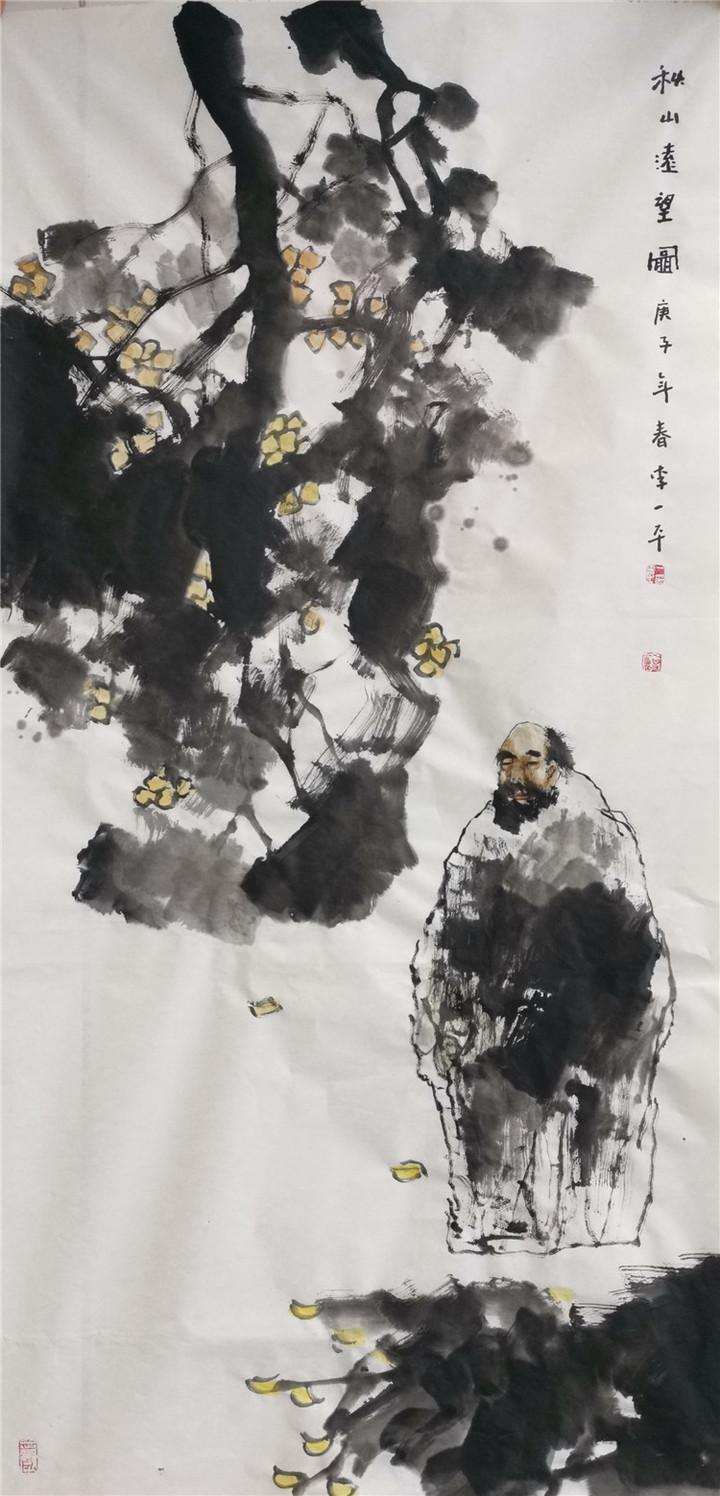 秋山遠望圖庚子年春李一平